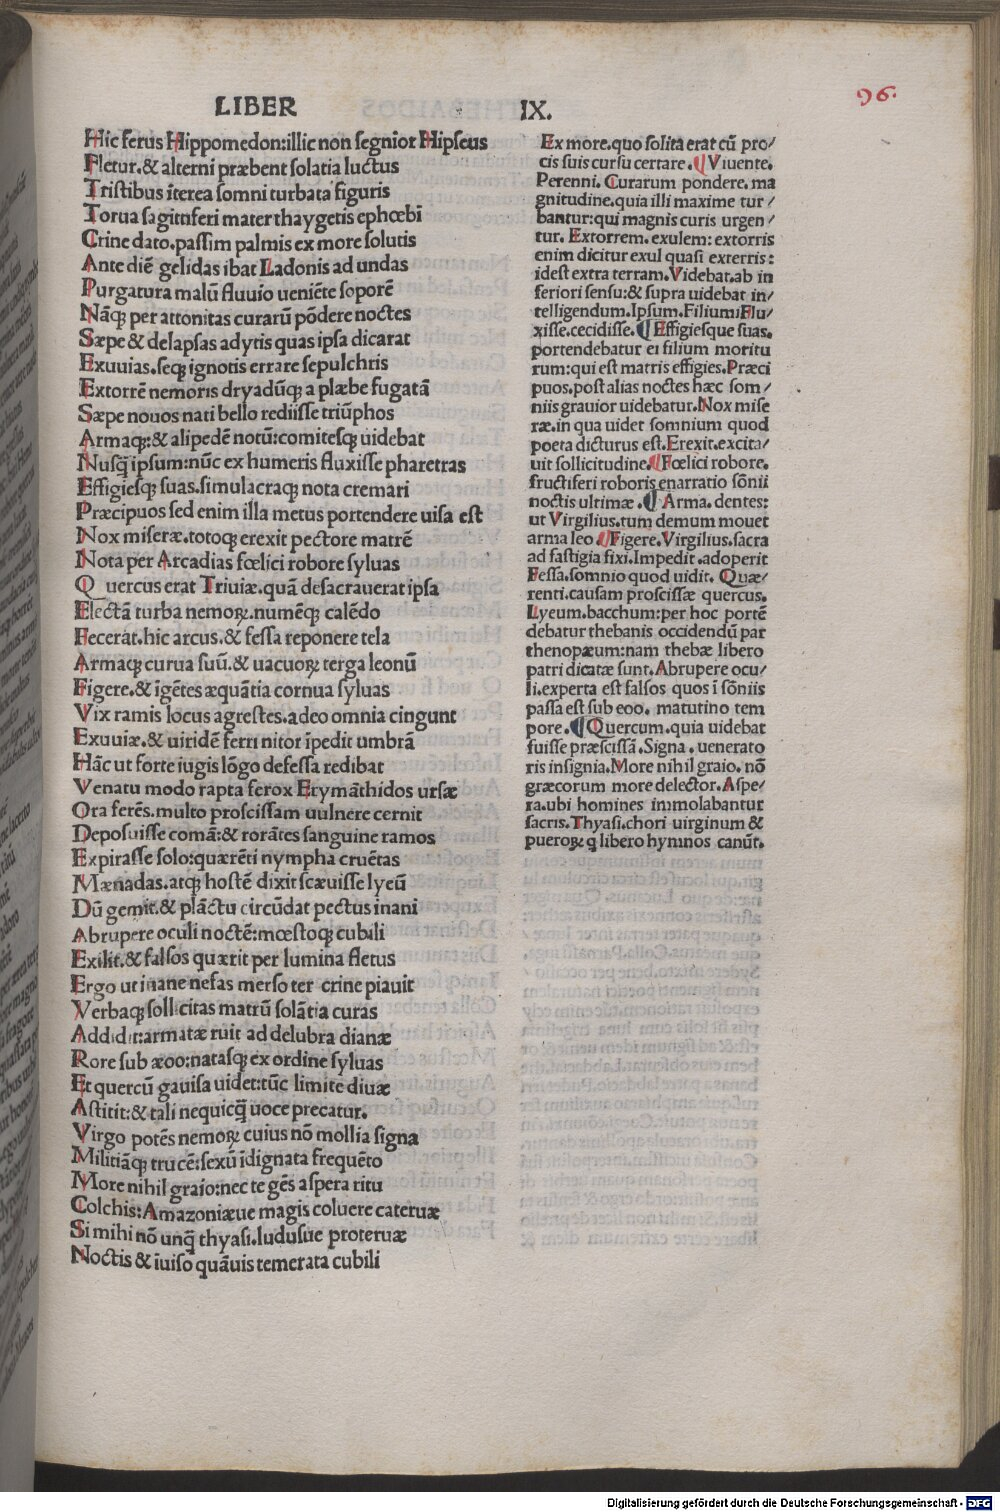 LIBER IX.
96.
Hic ferus Hippomedon:illic non ſegnior Hipſeus
Fletur.&amp; alterni præbent ſolatia luctus
Triſtibus īterea ſomni turbata figuris
Torua ſagittiferi mater thaygetis ephœbi
Crine dato.paſſim palmis ex more ſolutis
Ante diē gelidas ibat Ladonis ad undas
Purgatura malū fluuio ueniēte ſoporē
Nāq; per attonitas curarū pōdere noctes
Sæpe &amp; delapſas adytis quas ipſa dicarat
Exuuias.ſeq; ignotis errare ſepulchris
Extorrē nemoris dryadūq; a plæbe fugatā
Sæpe nouos nati bello rediiſſe triūphos
Armaq;:&amp; alipedē notū:comiteſq; uidebat
Nuſq̄ ipſum:nūc ex humeris fluxiſſe pharetras
Effigieſq; ſuas.ſimulacraq; nota cremari
Præcipuos ſed enim illa metus portendere uiſa eſt
Nox miſeræ.totoq; erexit pectore matrē
Nota per Arcadias fœlici robore ſyluas
Quercus erat Triuiæ.quā deſacrauerat ipſa
Electā turba nemoꝝ.numēq; calēdo
Fecerat.hic arcus.&amp; feſſa reponere tela
Armaq; curua ſuū.&amp; uacuoꝝ terga leonū
Figere.&amp; īgētes æquātia cornua ſyluas
Vix ramis locus agreſtes.adeo omnia cingunt
Exuuiæ.&amp; uiridē ferri nitor īpedit umbrā
Hāc ut forte iugis lōgo defeſſa redibat
Venatu modo rapta ferox Erymāthidos urſæ
Ora ferēs.multo prosciſſam uulnere cernit
Depoſuiſſe comā:&amp; rorātes ſanguine ramos
Expiraſſe ſolo:quærēti nympha cruētas
Mænadas.atq; hoſtē dixit ſcæuiſſe lyeū
Dū gemit.&amp; plāctu circūdat pectus inani
Abrupere oculi noctē:mœſtoq; cubili
Exilit.&amp; falſos quærit per lumina fletus
Ergo ut inane nefas merſo ter crine piauit
Verbaq; ſollicitas matrū ſolātia curas
Addidit:armatæ ruit ad delubra dianæ
Rore ſub æoo:nataſq; ex ordine ſyluas
Et quercū gauiſa uidet:tūc limite diuæ
Aſtitit:&amp; tali nequicq̄ uoce precatur.
Virgo potēs nemoꝝ cuius nō mollia ſigna
Militiāq; trucē:ſexū īdignata frequēto
More nihil graio:nec te gēs aſpera ritu
Colchis:Amazoniæue magis coluere cateruæ
Si mihi nō unq̄ thyaſi.luduſue proteruæ
Noctis &amp; īuiſo quāuis temerata cubili
Ex more.quo ſolita erat cū pro/
cis ſuis curſu certare.¶Viuente.
Perenni.Curarum pondere.ma
gnitudine.quia illi maxime tur/
bantur:qui magnis curis urgen/
tur. Extorrem.exulem:extorris
enim dicitur exul quaſi exterris:
ideſt extra terram.Videbat.ab in
feriori ſenſu:&amp; ſupra uidebat in/
telligendum.Ipſum.Filium:Flu/
xiſſe.cecidiſſe.¶Effigieſque ſuas.
portendebatur ei filium moritu
rum:qui eſt matris effigies.Præci
puos.poſt alias noctes hæc ſom/
niis grauior uidebatur.Nox miſe
ræ.in qua uidet ſomnium quod
poeta dicturus eſt.Erexit.excita/
uit ſollicitudine.¶Fœlici robore.
fructiferi roboris enarratio ſōnii
noctis ultimæ.¶Arma.dentes:
ut Virgilius.tum demum mouet
arma leo.¶Figere.Virgilius.ſacra
ad faſtigia fixi.Impedit.adoperit
Feſſa.ſomnio quod uidit. Quæ/
renti.cauſam prosciſſæ quercus.
Lyeum.bacchum:per hoc portē
debatur thebanis occidendū par
thenopæum:nam thebæ libero
patri dicatæ ſunt.Abrupere ocu/
li.experta eſt falſos quos ī ſōniis
paſſa eſt ſub eoo. matutino tem
pore.¶Quercum.quia uidebat
fuiſſe præſciſſā.Signa.uenerato
ris inſignia.More nihil graio.nō
græcorum more delector.Aſpe/
ra.ubi homines immolabantur
ſacris.Thyaſi.chori uirginum &amp;
pueroꝝ q̨ libero hymnos canūt.
Digitalisierung gefördert durch die Deutsche Forschungsgemeinschaft - DFG